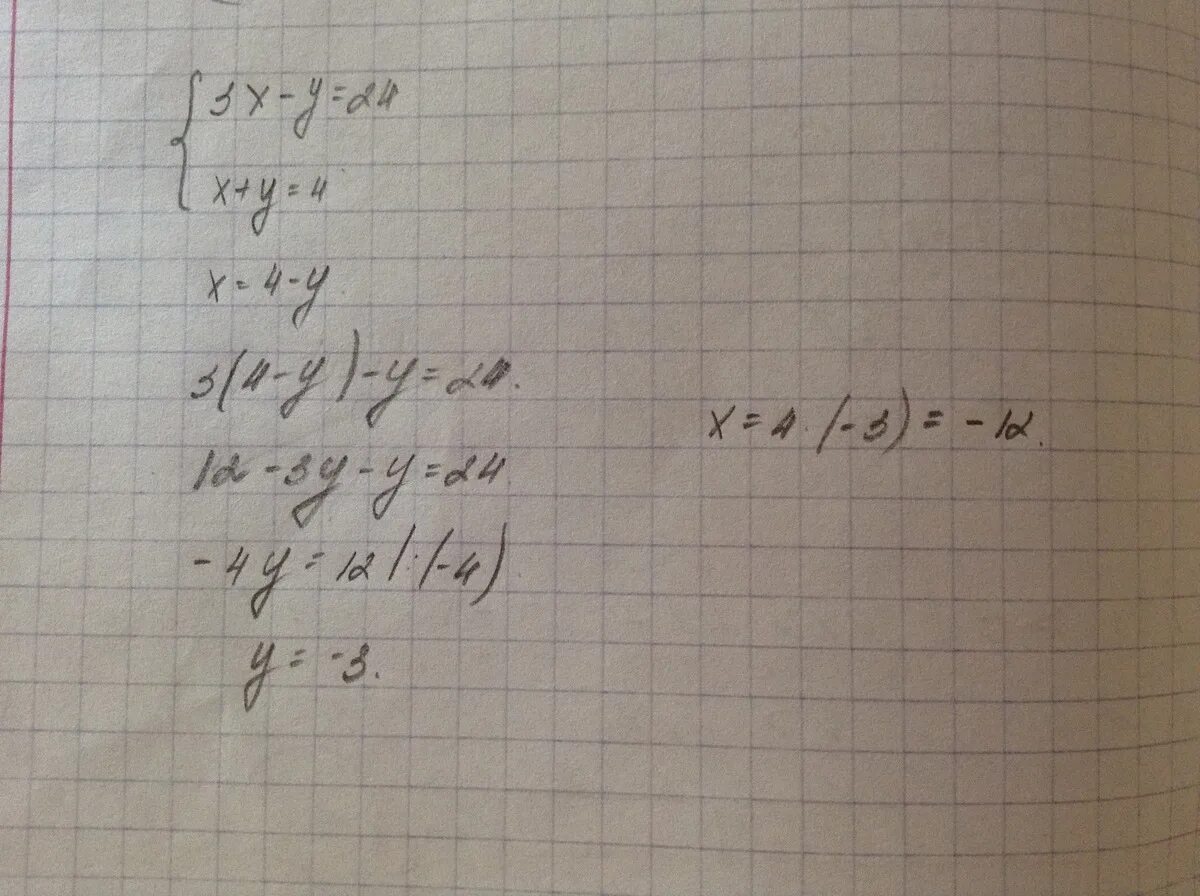 3x-y=24
x+y=4
x=4-y
3(4-y)-y=24.
12-3y-y=24
-4y=12 |:(-4)
y=-3.
x=4·(-3)=-12.